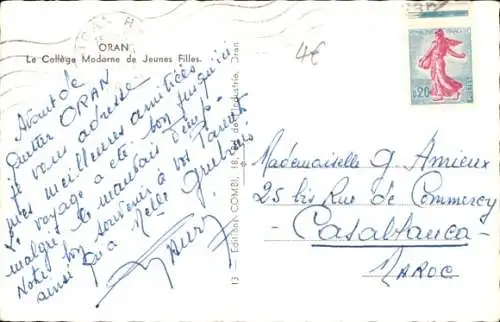 ORAN
Le Collège Moderne de Jeunes Filles.
4€
Avant de
quitter ORAN
je vous adresse
mes meilleures amitiés
Le voyage a été bon jusqu'ici
malgré le mauvais temps.
Notre bon souvenir à vos Parents
ainsi qu'à Melle
13 — Editions COMBI, 18, de l'Industrie, Oran
REPUBLIQUE FRANÇAISE
0,20
POSTES
Mademoiselle G. Amieux
25 bis Rue de Commercy
Casablanca
MAROC